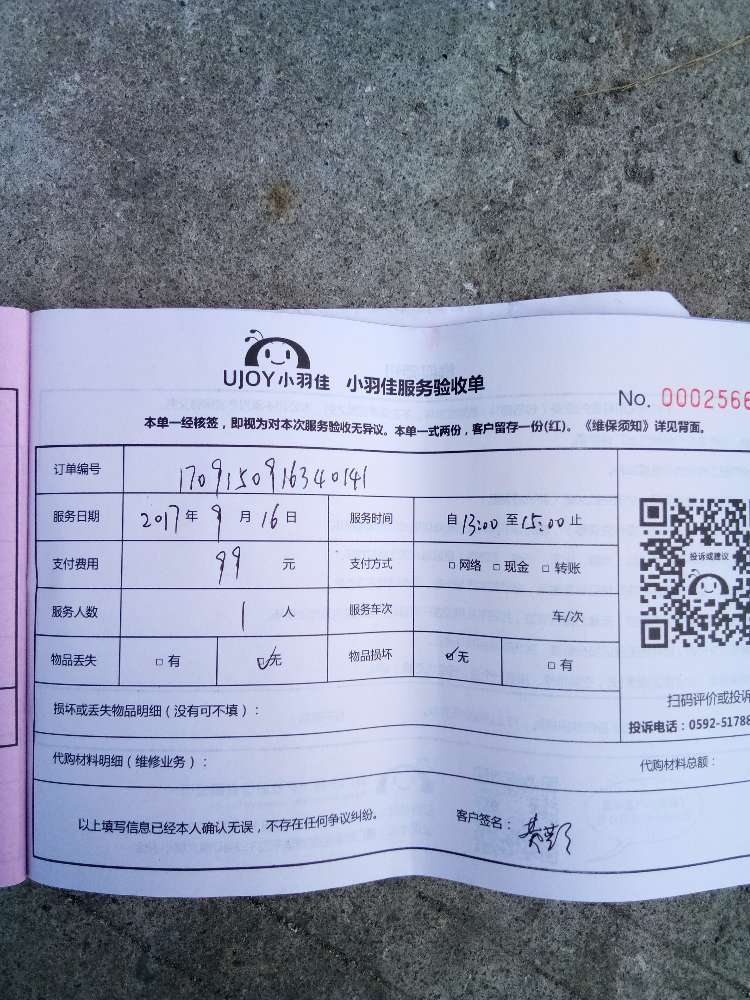 UJOY小羽佳 小羽佳服务验收单
No. 0002566
本单一经核签，即视为对本次服务验收无异议。本单一式两份，客户留存一份(红)。《维保须知》详见背面。
订单编号 170915091634 0141
服务日期 2017年9月16日 服务时间 自13:00至15:00止
支付费用 99元 支付方式 □网络 □现金 □转账
投诉或建议
服务人数 1人 服务车次 车/次
物品丢失 □有 ☑无 物品损坏 ☑无 □有
扫码评价或投诉
投诉电话：0592-51788
损坏或丢失物品明细（没有可不填）：
代购材料明细（维修业务）： 代购材料总额：
以上填写信息已经本人确认无误，不存在任何争议纠纷。 客户签名：